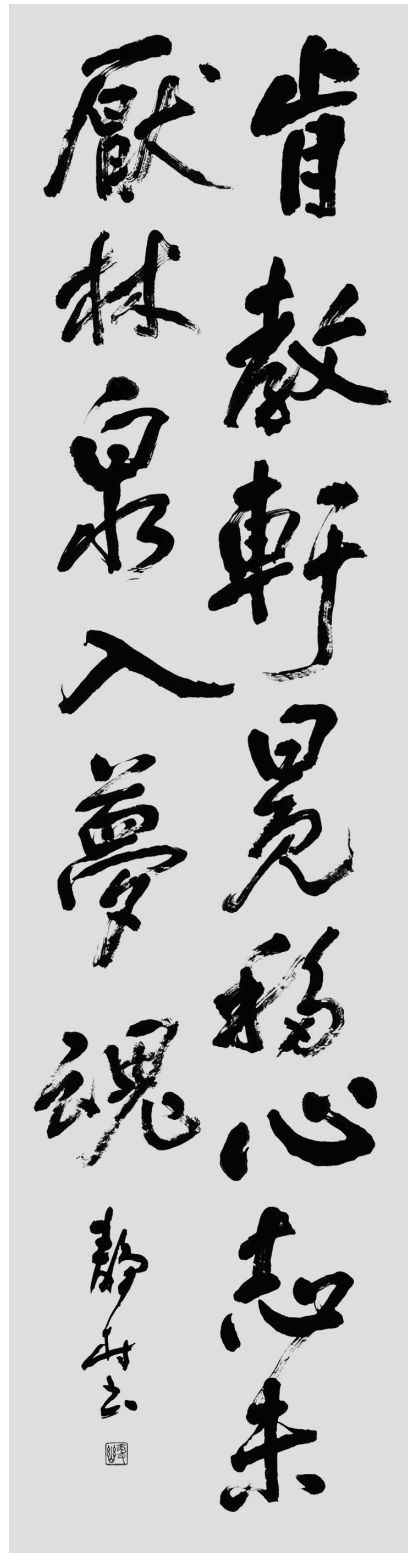 肯教軒冕移心志未
厭林泉入夢魂
靜村書